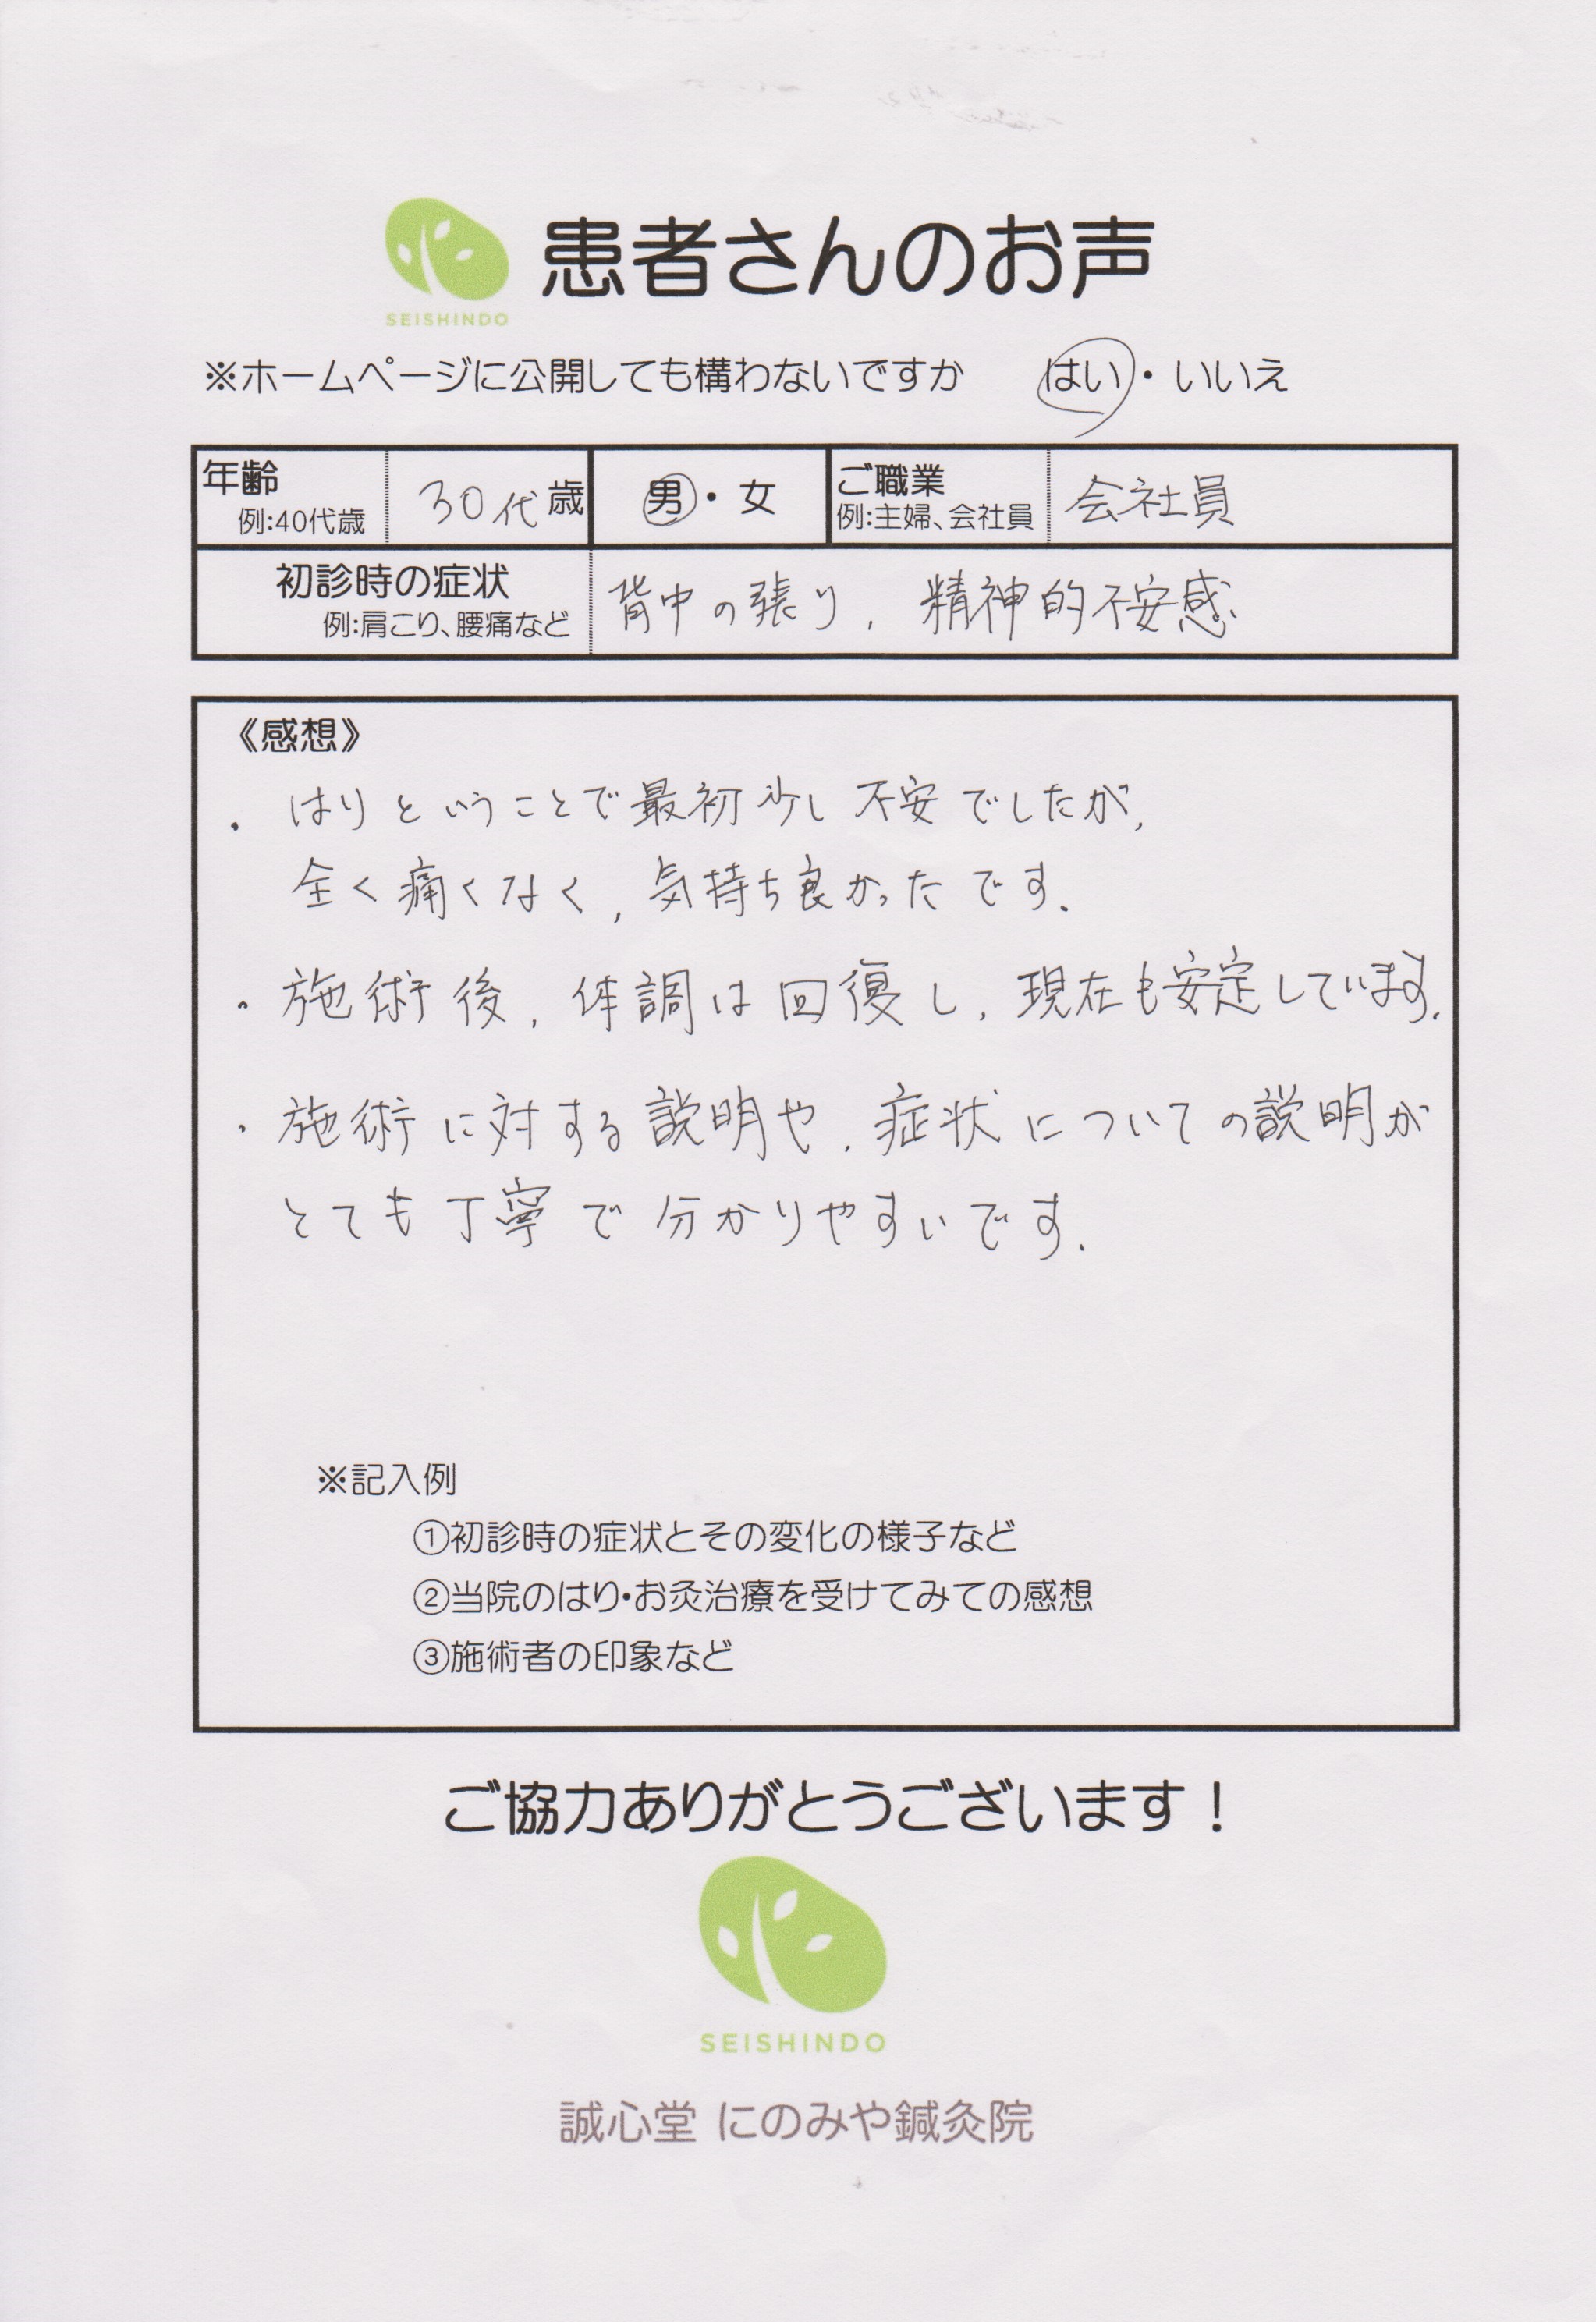 患者さんのお声
SEISHINDO
※ホームページに公開しても構わないですか はい・いいえ
年齢 30代歳 男・女 ご職業 会社員
例:40代歳 例:主婦、会社員
初診時の症状 背中の張り, 精神的不安感
例:肩こり、腰痛など
《感想》
・はりということで最初少し不安でしたが,
全く痛くなく, 気持ち良かったです.
・施術後, 体調は回復し, 現在も安定しています.
・施術に対する説明や, 症状についての説明が
とても丁寧で分かりやすいです.
※記入例
①初診時の症状とその変化の様子など
②当院のはり・お灸治療を受けてみての感想
③施術者の印象など
ご協力ありがとうございます！
SEISHINDO
誠心堂 にのみや鍼灸院